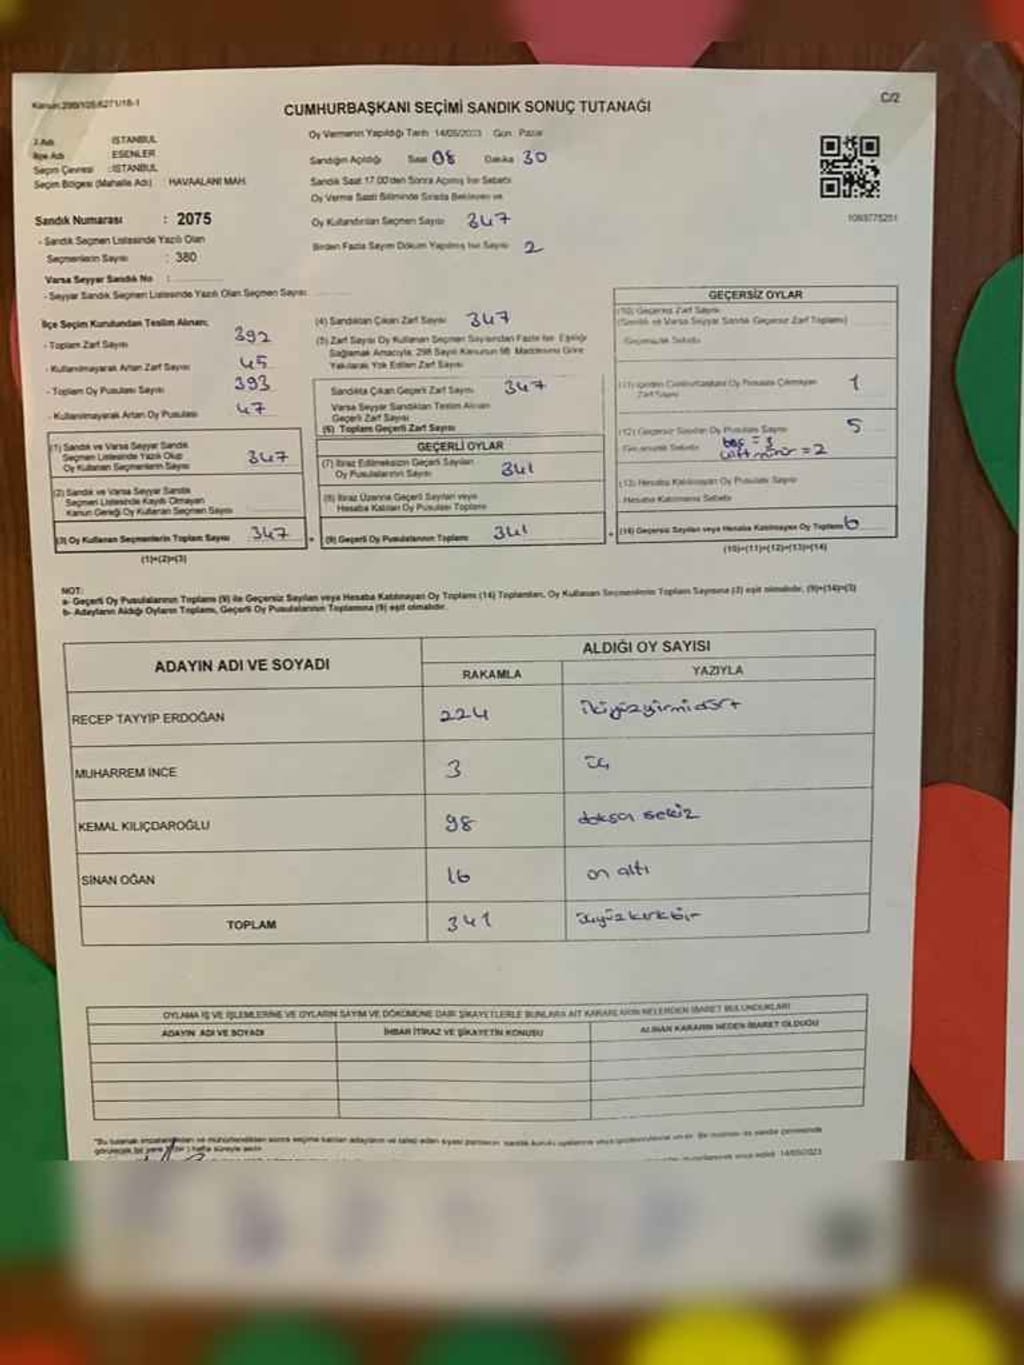 Kanun:298/105/6271/18-1
C/2
CUMHURBAŞKANI SEÇİMİ SANDIK SONUÇ TUTANAĞI
İl Adı İSTANBUL
İlçe Adı ESENLER
Seçim Çevresi : İSTANBUL
Seçim Bölgesi (Mahalle Adı) : HAVAALANI MAH.
Sandık Numarası : 2075
- Sandık Seçmen Listesinde Yazılı Olan
Seçmenlerin Sayısı : 380
Varsa Seyyar Sandık No :
- Seyyar Sandık Seçmen Listesinde Yazılı Olan Seçmen Sayısı
Oy Vermenin Yapıldığı Tarih 14/05/2023 Gün : Pazar
Sandığın Açıldığı Saat 08 Dakika 30
Sandık Saat 17.00'den Sonra Açılmış İse Sebebi
Oy Verme Saati Bitiminde Sırada Bekleyen ve
Oy Kullandırılan Seçmen Sayısı 347
Birden Fazla Sayım Döküm Yapılmış İse Sayısı 2
1093775251
İlçe Seçim Kurulundan Teslim Alınan;
- Toplam Zarf Sayısı 392
- Kullanılmayarak Artan Zarf Sayısı 45
- Toplam Oy Pusulası Sayısı 393
- Kullanılmayarak Artan Oy Pusulası 47
(1) Sandık ve Varsa Seyyar Sandık
Seçmen Listesinde Yazılı Olup
Oy Kullanan Seçmenlerin Sayısı 347
(2) Sandık ve Varsa Seyyar Sandık
Seçmen Listesinde Kayıtlı Olmayan
Kanun Gereği Oy Kullanan Seçmen Sayısı
(3) Oy Kullanan Seçmenlerin Toplam Sayısı 347
(1)+(2)=(3)
(4) Sandıktan Çıkan Zarf Sayısı 347
(5) Zarf Sayısı Oy Kullanan Seçmen Sayısından Fazla İse, Eşitliği
Sağlamak Amacıyla, 298 Sayılı Kanunun 98. Maddesine Göre
Yakılarak Yok Edilen Zarf Sayısı
Sandıkta Çıkan Geçerli Zarf Sayısı 347
Varsa Seyyar Sandıktan Teslim Alınan
Geçerli Zarf Sayısı
(6) Toplam Geçerli Zarf Sayısı
GEÇERLİ OYLAR
(7) İtiraz Edilmeksizin Geçerli Sayılan
Oy Pusulalarının Sayısı 341
(8) İtiraz Üzerine Geçerli Sayılan veya
Hesaba Katılan Oy Pusulası Toplamı
(9) Geçerli Oy Pusulalarının Toplamı 341
GEÇERSİZ OYLAR
(10) Geçersiz Zarf Sayısı
(Sandık ve Varsa Seyyar Sandık Geçersiz Zarf Toplamı)
Geçersizlik Sebebi
(11) İçinden Cumhurbaşkanı Oy Pusulası Çıkmayan
Zarf Sayısı 1
(12) Geçersiz Sayılan Oy Pusulası Sayısı 5
Geçersizlik Sebebi boş = 3
çift mühür = 2
(13) Hesaba Katılmayan Oy Pusulası Sayısı
Hesaba Katılmama Sebebi
(14) Geçersiz Sayılan veya Hesaba Katılmayan Oy Toplamı 6
(10)+(11)+(12)+(13)=(14)
NOT:
a- Geçerli Oy Pusulalarının Toplamı (9) ile Geçersiz Sayılan veya Hesaba Katılmayan Oy Toplamı (14) Toplamları, Oy Kullanan Seçmenlerin Toplam Sayısına (3) eşit olmalıdır. (9)+(14)=(3)
b- Adayların Aldığı Oyların Toplamı, Geçerli Oy Pusulalarının Toplamına (9) eşit olmalıdır.
ADAYIN ADI VE SOYADI
ALDIĞI OY SAYISI
RAKAMLA YAZIYLA
RECEP TAYYİP ERDOĞAN 224 ikiyüzyirmidört
MUHARREM İNCE 3 üç
KEMAL KILIÇDAROĞLU 98 doksan sekiz
SİNAN OĞAN 16 on altı
TOPLAM 341 üçyüzkırkbir
OYLAMA İŞ VE İŞLEMLERİNE VE OYLARIN SAYIM VE DÖKÜMÜNE DAİR ŞİKAYETLERLE BUNLARA AİT KARARLARIN NELERDEN İBARET BULUNDUKLARI
ADAYIN ADI VE SOYADI İHBAR İTİRAZ VE ŞİKAYETİN KONUSU ALINAN KARARIN NEDEN İBARET OLDUĞU
14/05/2023